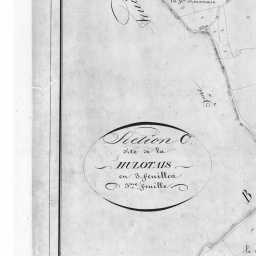 Section C.
dite de la
HULOTAIS
en 3 feuilles
3me feuille
B